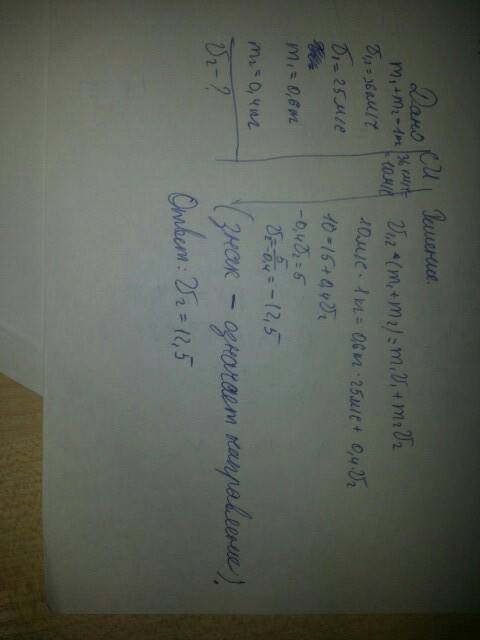 Дано
m₁+m₂=1т
v₁₂=36км/ч
v₁=25м/с
m₁=0,6т
m₂=0,4т
v₂-?
СИ
36км/ч=
=10м/с
Решение.
v₁₂·(m₁+m₂)=m₁v₁+m₂v₂
10м/с·1т=0,6т·25м/с+0,4v₂
10=15+0,4v₂
-0,4v₂=5
v₂=5/-0,4=-12,5
(знак - означает направление).
Ответ: v₂=12,5